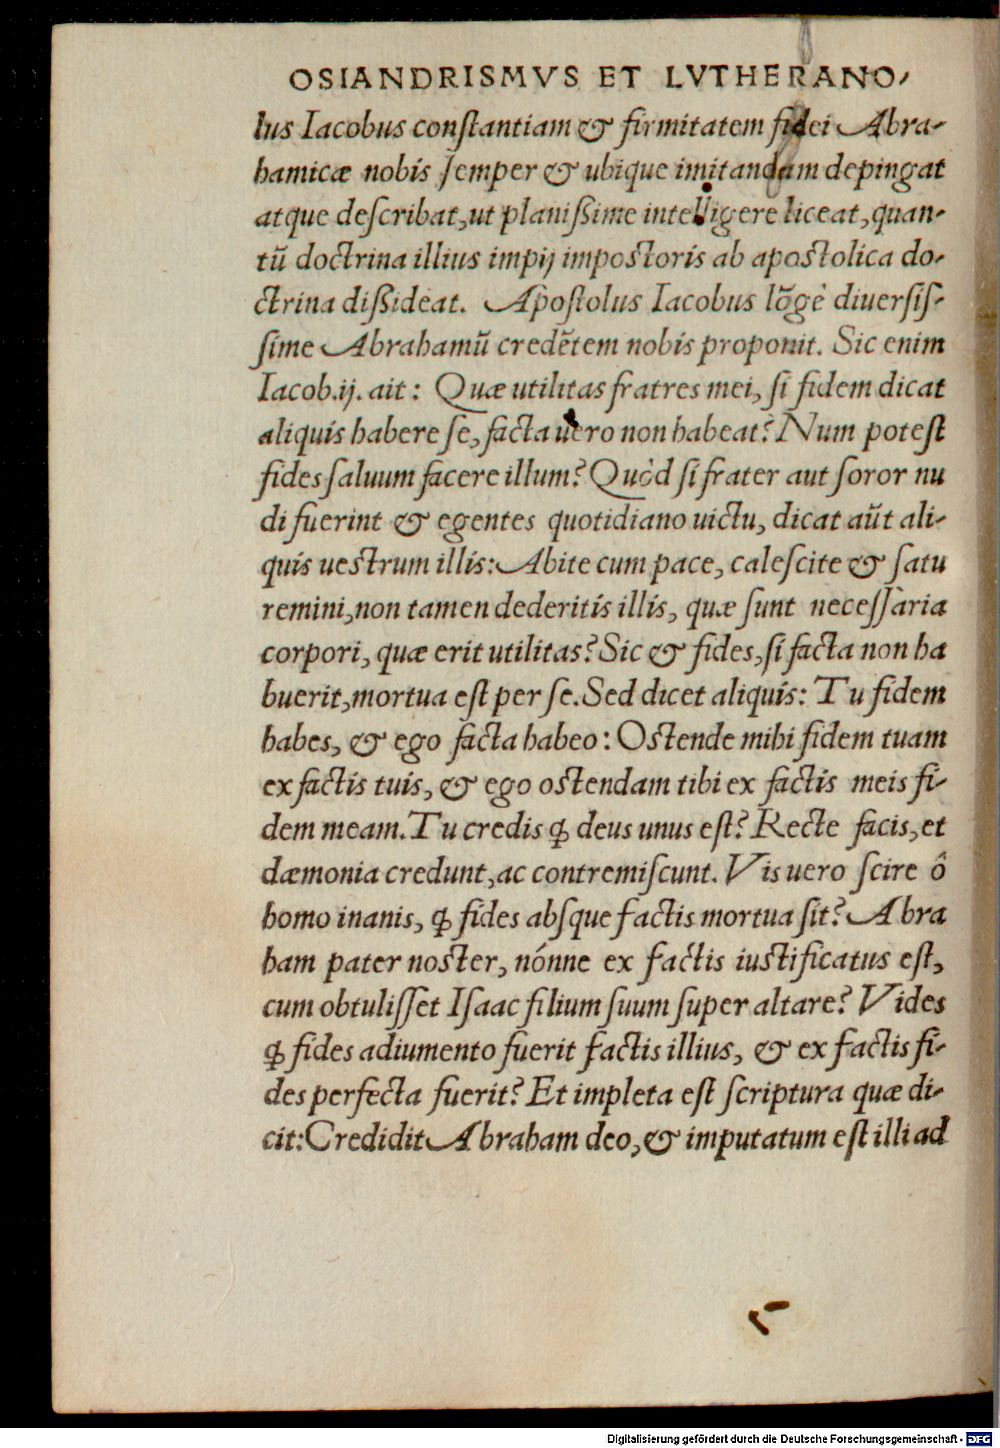 OSIANDRISMVS ET LVTHERANO-
lus Iacobus conſtantiam & firmitatem fidei Abra-
hamicæ nobis ſemper & ubique imitandam depingat
atque deſcribat, ut planißime intelligere liceat, quan-
tũ doctrina illius impij impostoris ab apostolica do-
ctrina dißideat. Apoſtolus Iacobus lõgè diuerſiſ-
ſime Abrahamũ credẽtem nobis proponit. Sic enim
Iacob.ij. ait: Quæ utilitas fratres mei, ſi fidem dicat
aliquis habere ſe, facta uero non habeat? Num poteſt
fides ſaluum facere illum? Quòd ſi frater aut ſoror nu
di fuerint & egentes quotidiano uictu, dicat aũt ali-
quis uestrum illis: Abite cum pace, caleſcite & ſatu
remini, non tamen dederitis illis, quæ ſunt neceſſaria
corpori, quæ erit utilitas? Sic & fides, ſi facta non ha
buerit, mortua eſt per ſe. Sed dicet aliquis: Tu fidem
habes, & ego facta habeo: Ostende mihi fidem tuam
ex factis tuis, & ego ostendam tibi ex factis meis fi-
dem meam. Tu credis ꝙ deus unus eſt? Recte facis, et
dæmonia credunt, ac contremiſcunt. Vis uero ſcire ô
homo inanis, ꝙ fides abſque factis mortua ſit? Abra
ham pater noster, nónne ex factis iustificatus eſt,
cum obtuliſſet Iſaac filium ſuum ſuper altare? Vides
ꝙ fides adiumento fuerit factis illius, & ex factis fi-
des perfecta fuerit? Et impleta eſt ſcriptura quæ di-
cit: Credidit Abraham deo, & imputatum eſt illi ad
Digitalisierung gefördert durch die Deutsche Forschungsgemeinschaft - DFG